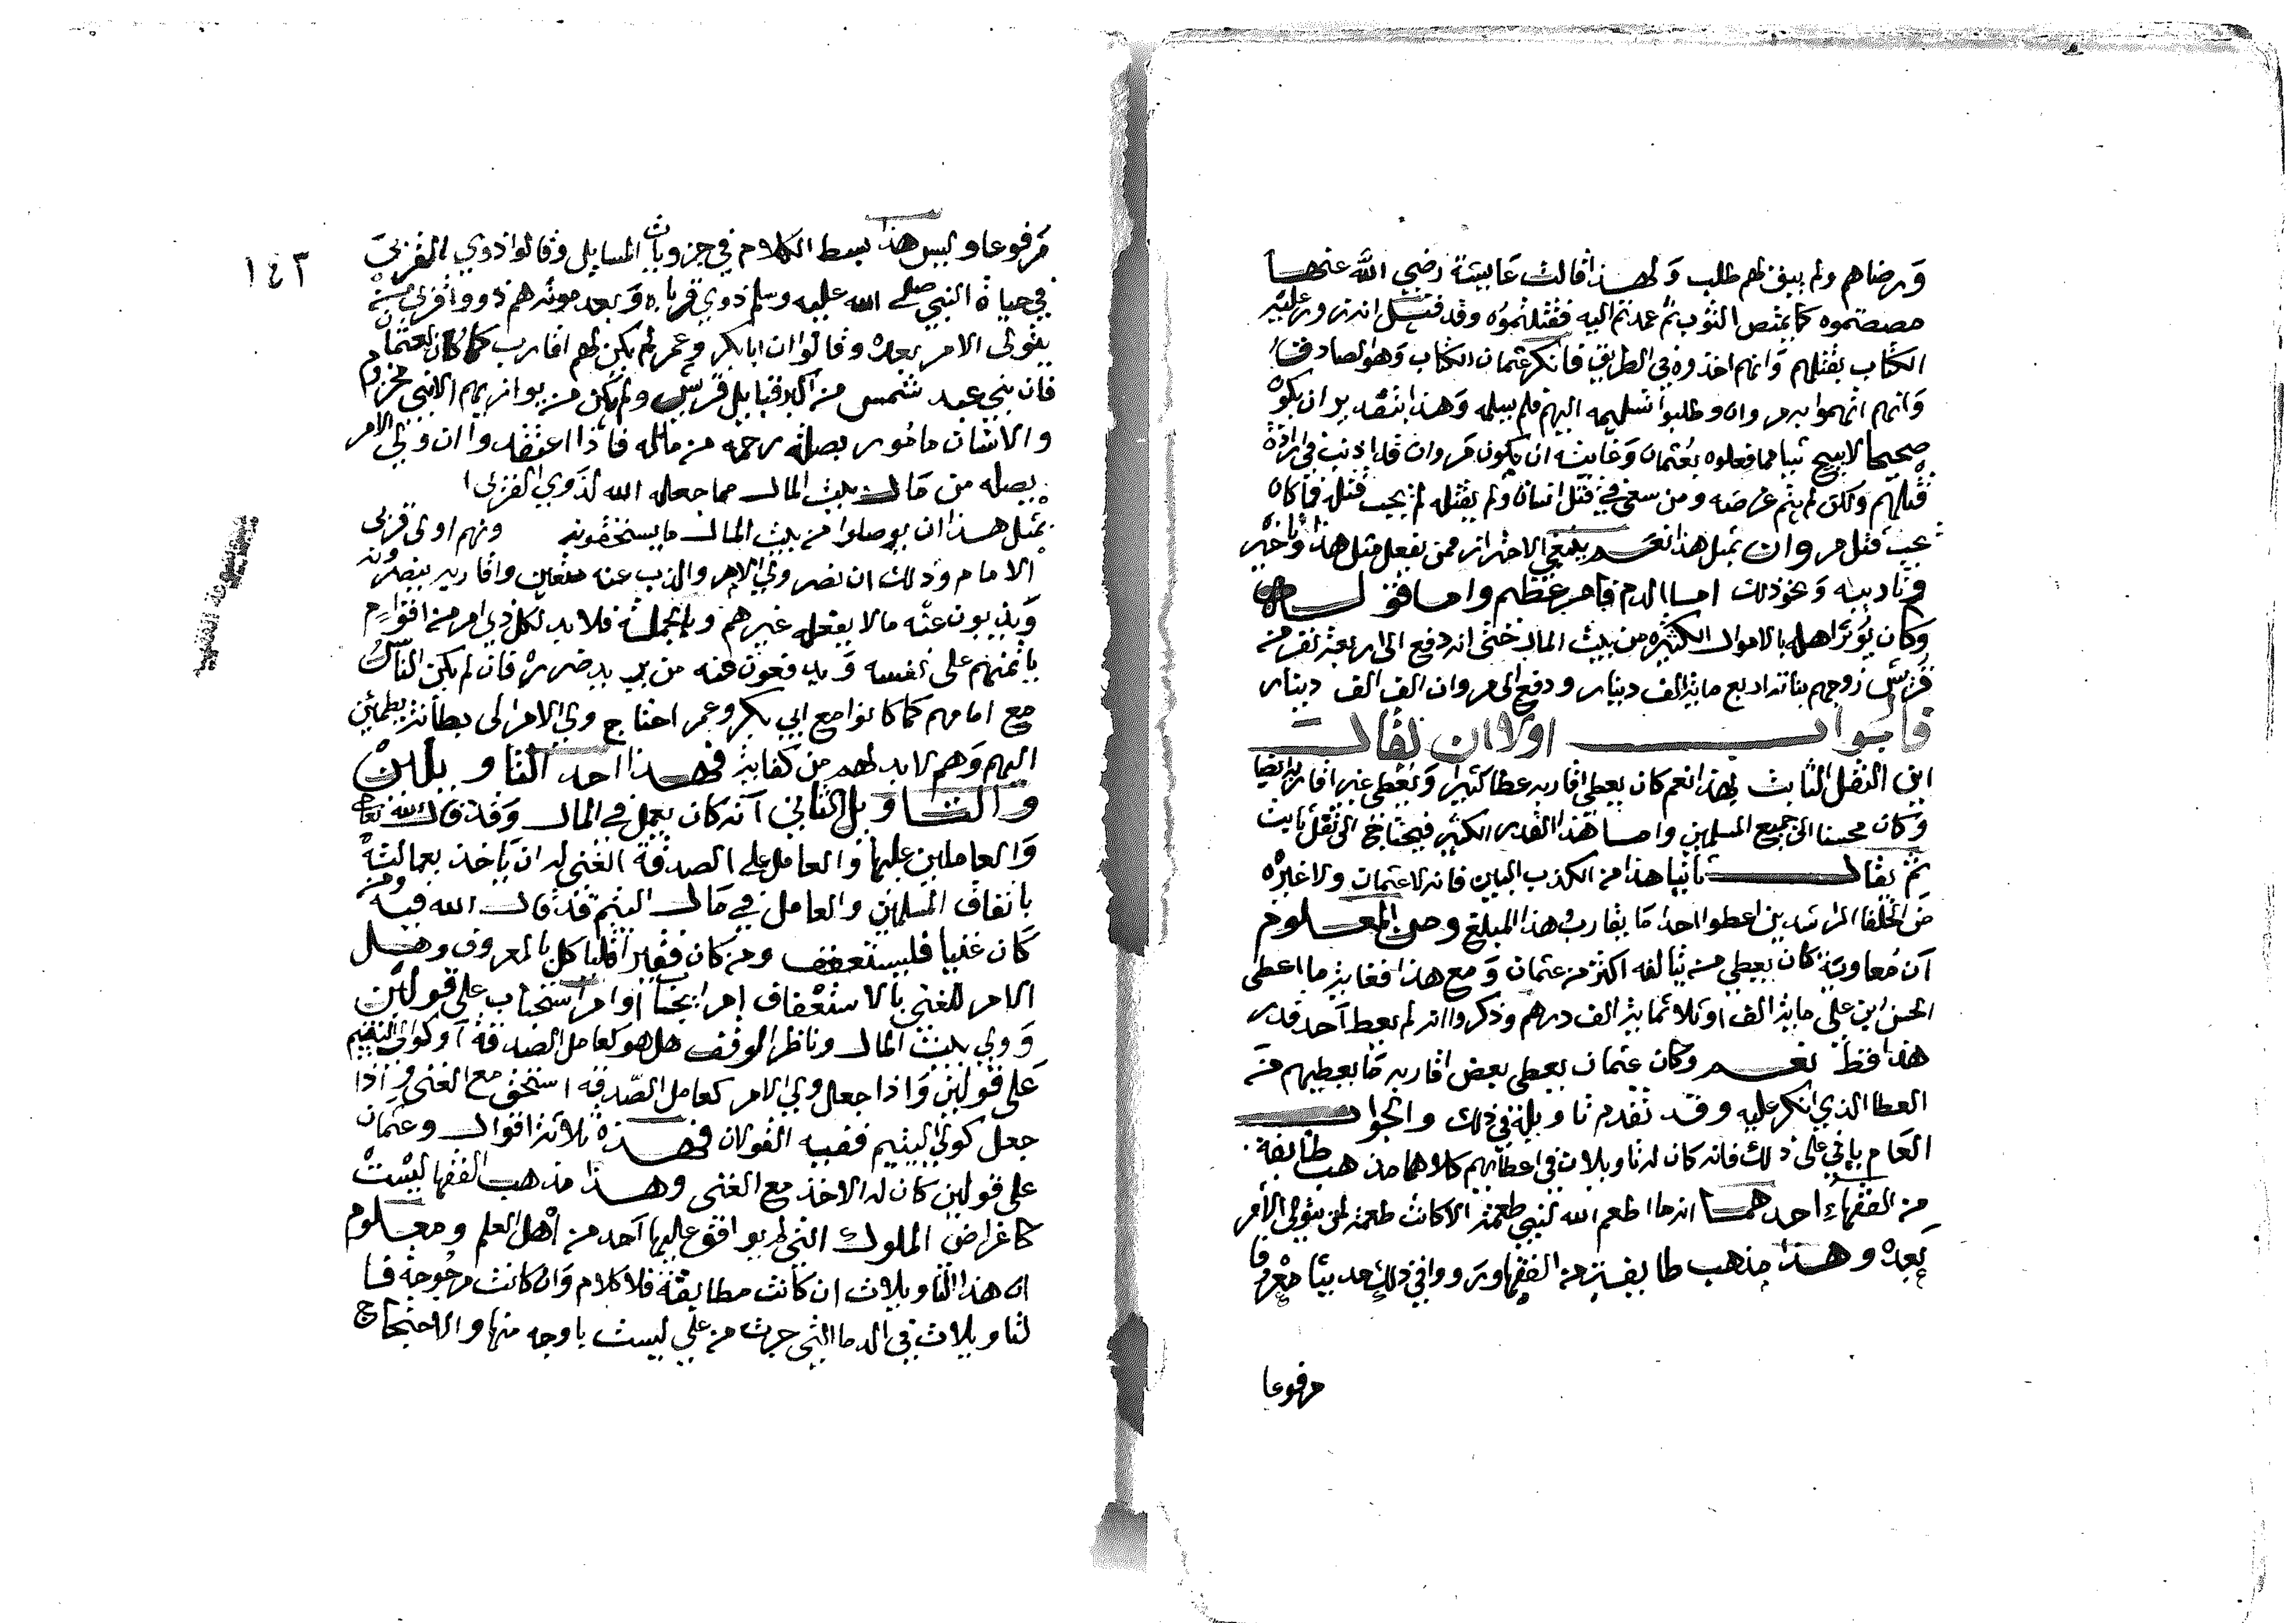 ورضاهم ولم يبق لهم طلب ولهذا قالت عايشة رضي الله عنها
مصصتموه كما يمص الثوب ثم عمدتم اليه فقتلتموه وقد قيل انه زور عليه
الكتاب بقتلهم وانهم اخذوه في الطريق فانكر عثمان الكتاب وهو الصادق
وانهم اتهموا به مروان وطلبوا تسليمه اليهم فلم يسلمه وهذا بتقدير ان يكون
صحيحا لا يبيح شيا مما فعلوه بعثمان وغايته ان يكون مروان قد اذنب في ارادة
قتلهم ولكن لم يتم غرضه ومن سعى في قتل انسان ولم يقتله لم يجب قتله فما كان
يجب قتل مروان بمثل هذا نعم ينبغي الاحتراز ممن يفعل مثل هذا وتاخيره
وتاديبه ونحو ذلك اما الدم فامر عظيم واما قوله
وكان يوثر اهله بالاموال الكثيرة من بيت المال حتى انه دفع الى اربعة نفر من
قريش زوجهم بناته اربع ماية الف دينار ودفع الى مروان الف الف دينار
فالجواب اولا ان يقال
اين النقل الثابت بهذا نعم كان يعطي اقاربه عطا كثيرا ويعطي غير اقاربه ايضا
وكان محسنا الى جميع المسلمين واما هذا القدر الكثير فيحتاج الى نقل ثابت
ثم يقال ثانيا هذا من الكذب البين فانه لا عثمان ولا غيره
من الخلفا الراشدين اعطوا احدا ما يقارب هذا المبلغ ومن المعلوم
ان معاوية كان يعطي من يتالفه اكثر من عثمان ومع هذا فغاية ما اعطى
الحسن ابن علي ماية الف او ثلاثماية الف درهم وذكروا انه لم يعط احد قدر
هذا قط نعم وكان عثمان يعطي بعض اقاربه ما يعطيهم من
العطا الذي انكر عليه وقد تقدم تاويله في ذلك والجواب
العام ياتي على ذلك فانه كان له تاويلات في اعطايهم كلاهما مذهب طايفة
من الفقهاء احدهما انه ما اطعم الله لنبي طعمة الا كانت طعمة لمن يتولى الامر
بعده وهذا مذهب طايفة من الفقها ورووا في ذلك حديثا معروفا
مرفوعا
١٤٣
مرفوعا وليس هذا بسط الكلام في جزويات المسايل وقالوا ذوي القربى
في حياة النبي صلى الله عليه وسلم ذوي قرباه وبعد موته هم ذووا قربى من
يتولى الامر بعده وقالوا ان ابا بكر وعمر لم يكن لهم اقارب كما كان لعثمان
فان بني عبد شمس من اكبر قبايل قريش ولم يكن من يوازيهم الا بني مخزوم
والانسان مامور بصلة رحمه من ماله فاذا اعتقدوا ان ولي الامر
يصله من مال بيت المال مما جعله الله لذوي القربى ا
بمثل هذا ان يوصلوا من بيت المال ما يستحقونه ونهم اولى قربى
الامام وذلك ان نصر ولي الامر والذب عنه متعين واقاربه ينصرونه
ويذبون عنه ما لا يفعله غيرهم وبالجملة فلا بد لكل ذي امر من اقوام
ياتمنهم على نفسه ويدفعون عنه من يريد ضرره فان لم يكن الناس
مع امامهم كما كانوا مع ابي بكر وعمر احتاج ولي الامر الى بطانة يطمئن
اليهم وهم لا بد لهم من كفاية فهذا احد التاويلين
والتاويل الثاني انه كان يعمل في المال وقد قال الله تعالى
والعاملين عليها والعامل على الصدقة الغني له ان ياخذ بعمالته
باتفاق المسلمين والعامل في مال اليتيم قد قال الله فيه ومن
كان غنيا فليستعفف ومن كان فقيرا فلياكل بالمعروف وهل
الامر للغني بالاستعفاف امر ايجاب او امر استحباب على قولين
وولي بيت المال وناظر الوقف هل هو كعامل الصدقة او كولي اليتيم
على قولين واذا جعل ولي الامر كعامل الصدقه استحق مع الغنى واذا
جعل كولي اليتيم ففيه القولان فهذه ثلاثة اقوال وعثمان
على قولين كان له الاخذ مع الغنى وهذا مذهب الفقها ليست
كاغراض الملوك التي لم يوافق عليها احد من اهل العلم ومعلوم
ان هذا التاويلات ان كانت مطابقة فلا كلام وان كانت مرجوحة فا
لتاويلات في الدما التي جرت من علي ليست باوجه منها والاحتجاج